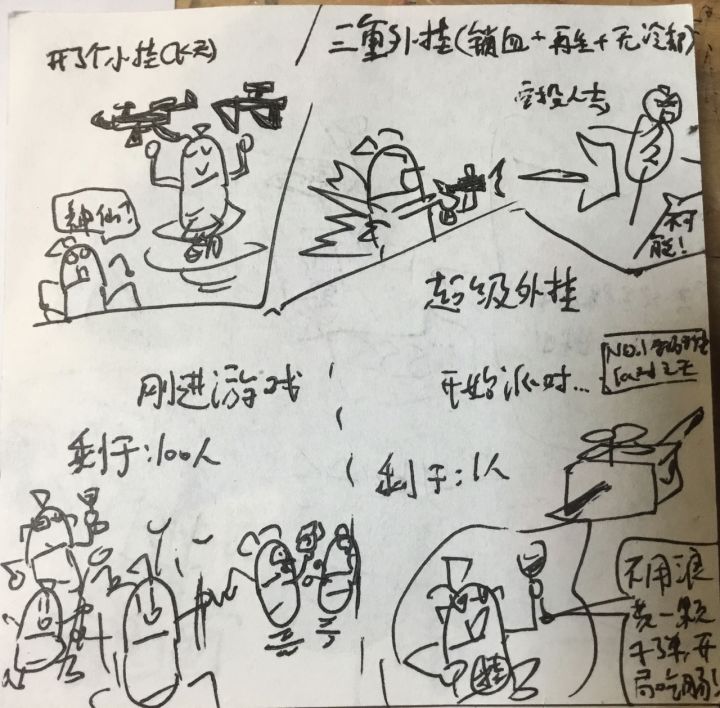 开了个小挂
三重外挂(锁血+再生+无冷却)
神仙?
不可
能!
超级外挂
刚进游戏
剩于:100人
开始派对...
剩于:1人
NO.1
挂
不用浪
费一颗
子弹,开
局吃鸡!